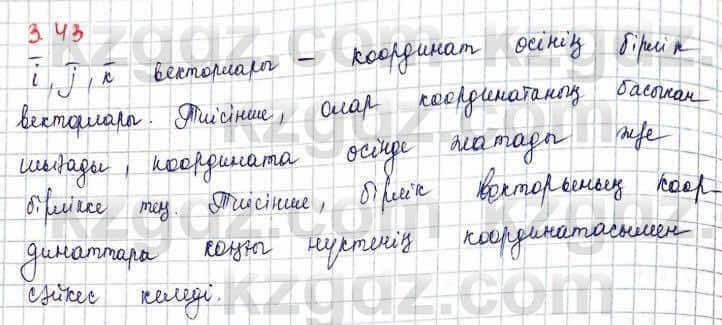 3.43
i̅, j̅, k̅ векторлары – координат осінің бірлік
векторлары. Тиісінше, олар координатаның басынан
шығады, координата осінде жатады және
бірлікке тең. Тиісінше, бірлік векторының коор-
динаттары соңғы нүктенің координатасымен
сәйкес келеді.
kzgdz.com